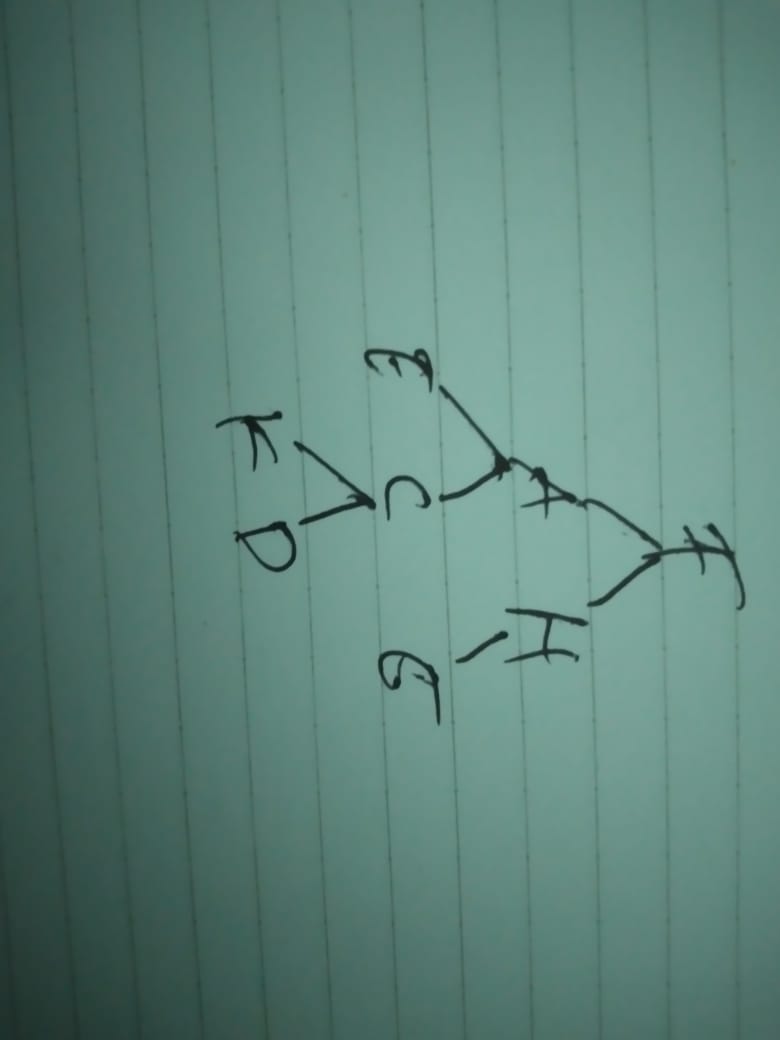 F
A H
E C G
K D